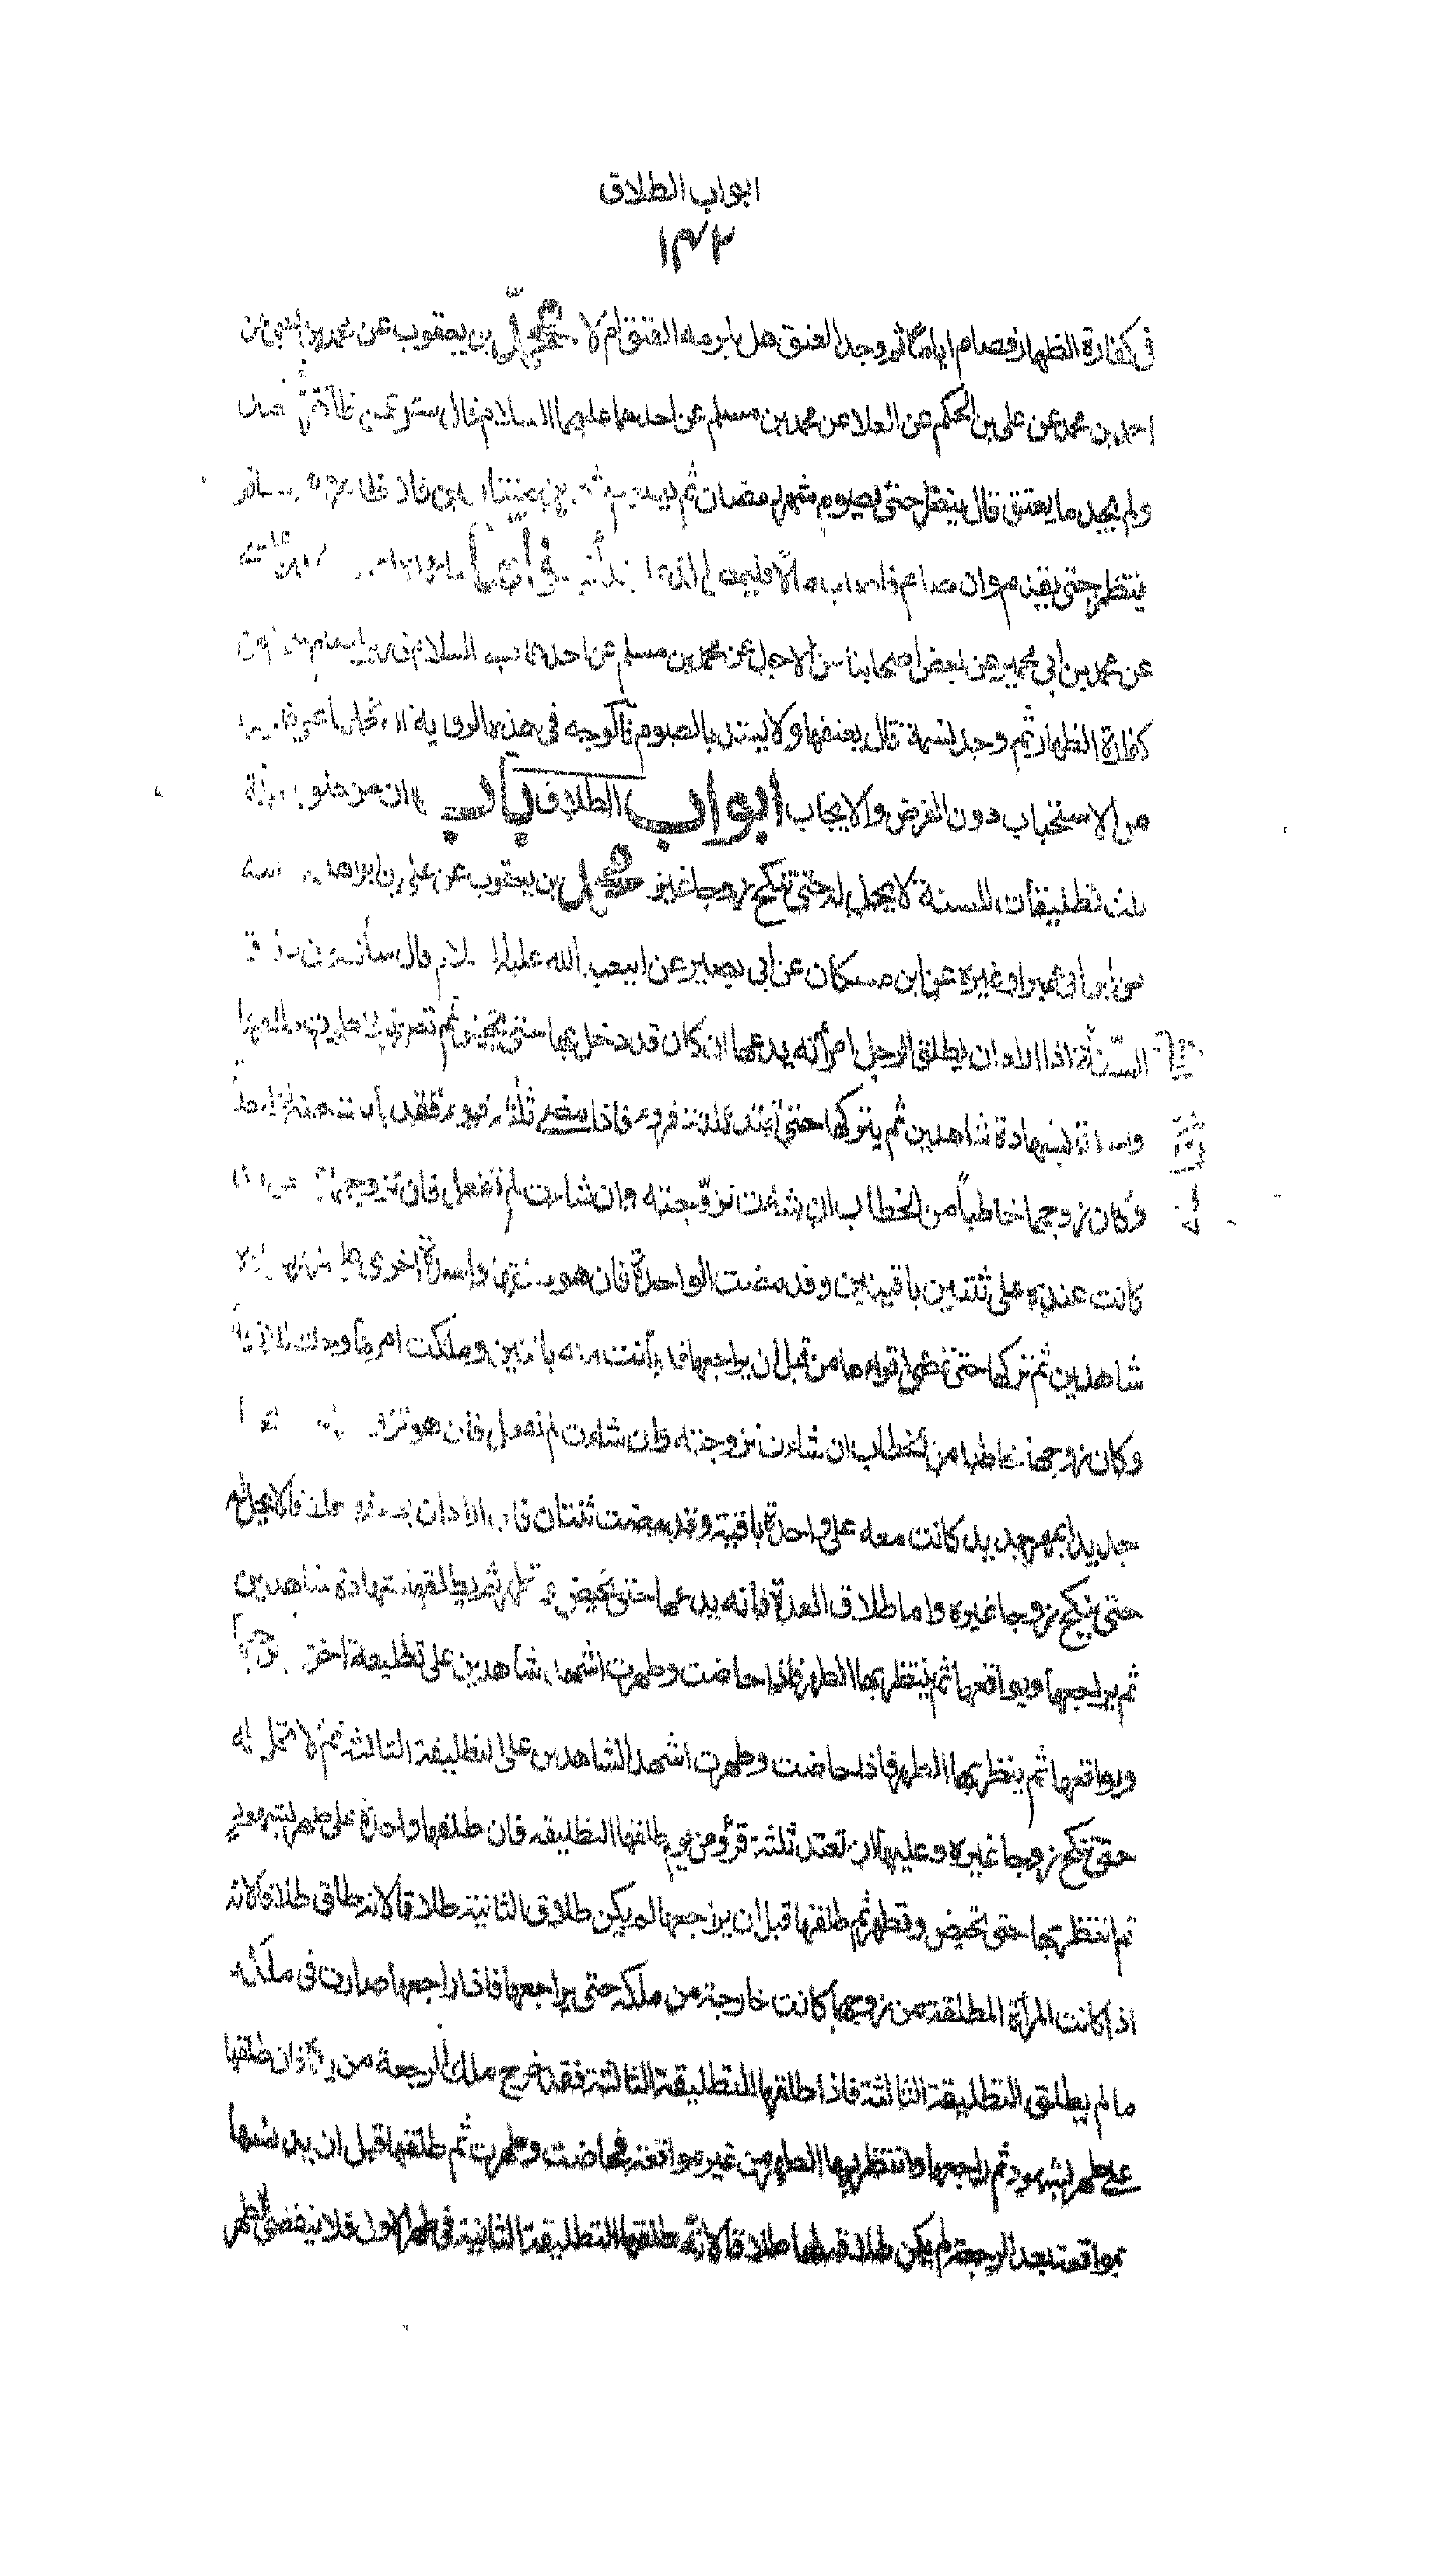 ابواب الطلاق
١٣٢
فى كفارة الظهار فصام اياما ثم وجد العتق هل يلزمه العتق ام لا محمد بن يعقوب عن محمد بن يحيى عن
احمد بن محمد عن على بن الحكم عن العلا عن محمد بن مسلم عن احدهما عليهما السلام قال سئل عمن ظاهر
ولم يجد ما يعتق قال ينتظر حتى يصوم شهر رمضان ثم يصوم شهرين متتابعين فان ظاهر وهو مسافر
ينتظر حتى يقدم وان صام فاصاب مالا فليمض الذى
عن محمد بن ابى عمير عن بعض اصحابنا عن محمد بن مسلم عن احدهما السلام فى
كفارة الظهار ثم وجد نسمة قال يعتقها ولا يعتد بالصوم فالوجه فى هذه الرواية ان نحملها على ضرب
من الاستحباب دون الفرض والايجاب ابواب الطلاق باب ان من طلق
ثلث تطليقات للسنة لا تحل له حتى تنكح زوجا غيره محمد بن يعقوب عن على بن ابراهيم عن ابيه
عن ابن ابى عمير او غيره عن ابن مسكان عن ابى بصير عن ابيعبد الله عليه السلام قال سألته عن طلاق
السنة اذا اراد ان يطلق الرجل امرأته يدعها ان كان قد دخل بها حتى تحيض ثم تطهر فاذا طهرت طلقها
واحدة بشهادة شاهدين ثم يتركها حتى تعتد ثلثة قروء فاذا مضى ثلثة قروء فقد بانت منه بواحدة
وكان زوجها خاطبا من الخطاب ان شاءت تزوجته وان شاءت لم تفعل فان تزوجها
كانت عنده على ثنتين باقيتين وقد مضت الواحدة فان هو طلقها واحدة اخرى على طهر
شاهدين ثم تركها حتى تمضى اقراؤها من قبل ان يراجعها فقد بانت منه باثنتين وملكت امرها وحلت للازواج
وكان زوجها خاطبا من الخطاب ان شاءت تزوجته وان شاءت لم تفعل فان هو تزوجها
جديدا بمهر جديد كانت معه على واحدة باقية وقد مضت ثنتان فان اراد ان يطلقها طلاقا لا تحل له
حتى تنكح زوجا غيره واما طلاق العدة فانه يدعها حتى تحيض وتطهر ثم يطلقها بشهادة شاهدين
ثم يراجعها ويواقعها ثم ينتظر بها الطهر فاذا حاضت وطهرت اشهد شاهدين على تطليقة اخرى ثم يراجعها
ويواقعها ثم ينتظر بها الطهر فاذا حاضت وطهرت اشهد الشاهدين على التطليقة الثالثة ثم لا تحل له
حتى تنكح زوجا غيره وعليها ان تعتد ثلثة قروء من يوم طلقها التطليقه فان طلقها واحدة على طهر بشهود
ثم انتظر بها حتى تحيض وتطهر ثم طلقها قبل ان يراجعها لم يكن طلاق الثانية طلاقا لانه طلق طلاقا لانه
اذا كانت المرأة المطلقة من زوجها كانت خارجة من ملكه حتى يراجعها فاذا راجعها صارت فى ملكه
ما لم يطلق التطليقة الثالثة فاذا طلقها التطليقة الثالثة فقد خرج ملك الرجعة من يده فان طلقها
على طهر بشهود ثم راجعها وانتظر بها الطهر من غير مواقعة فحاضت وطهرت ثم طلقها قبل ان يدنسها
بمواقعة بعد الرجعة لم يكن طلاقه لها طلاقا لانه طلقها التطليقة الثانية فى طهر الاول فلا ينقضى الطهر